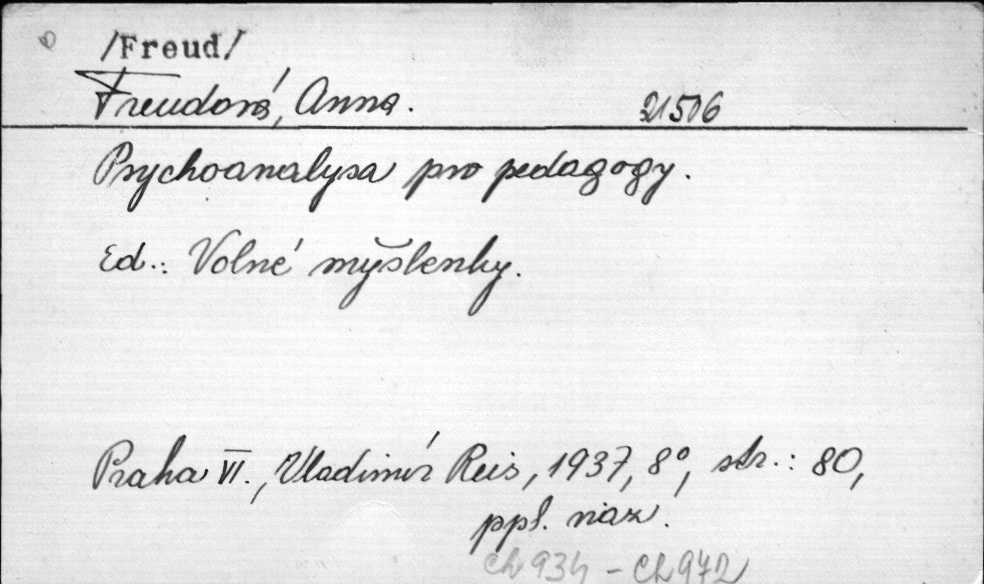 /Freud/
Freudová, Anna. 21506
Psychoanalysa pro pedagogy.
Ed.: Volné myšlenky.
Praha VI., Vladimír Reis, 1937, 8°, str.: 80,
ppl. váz.
Ch 934 - Ch 972